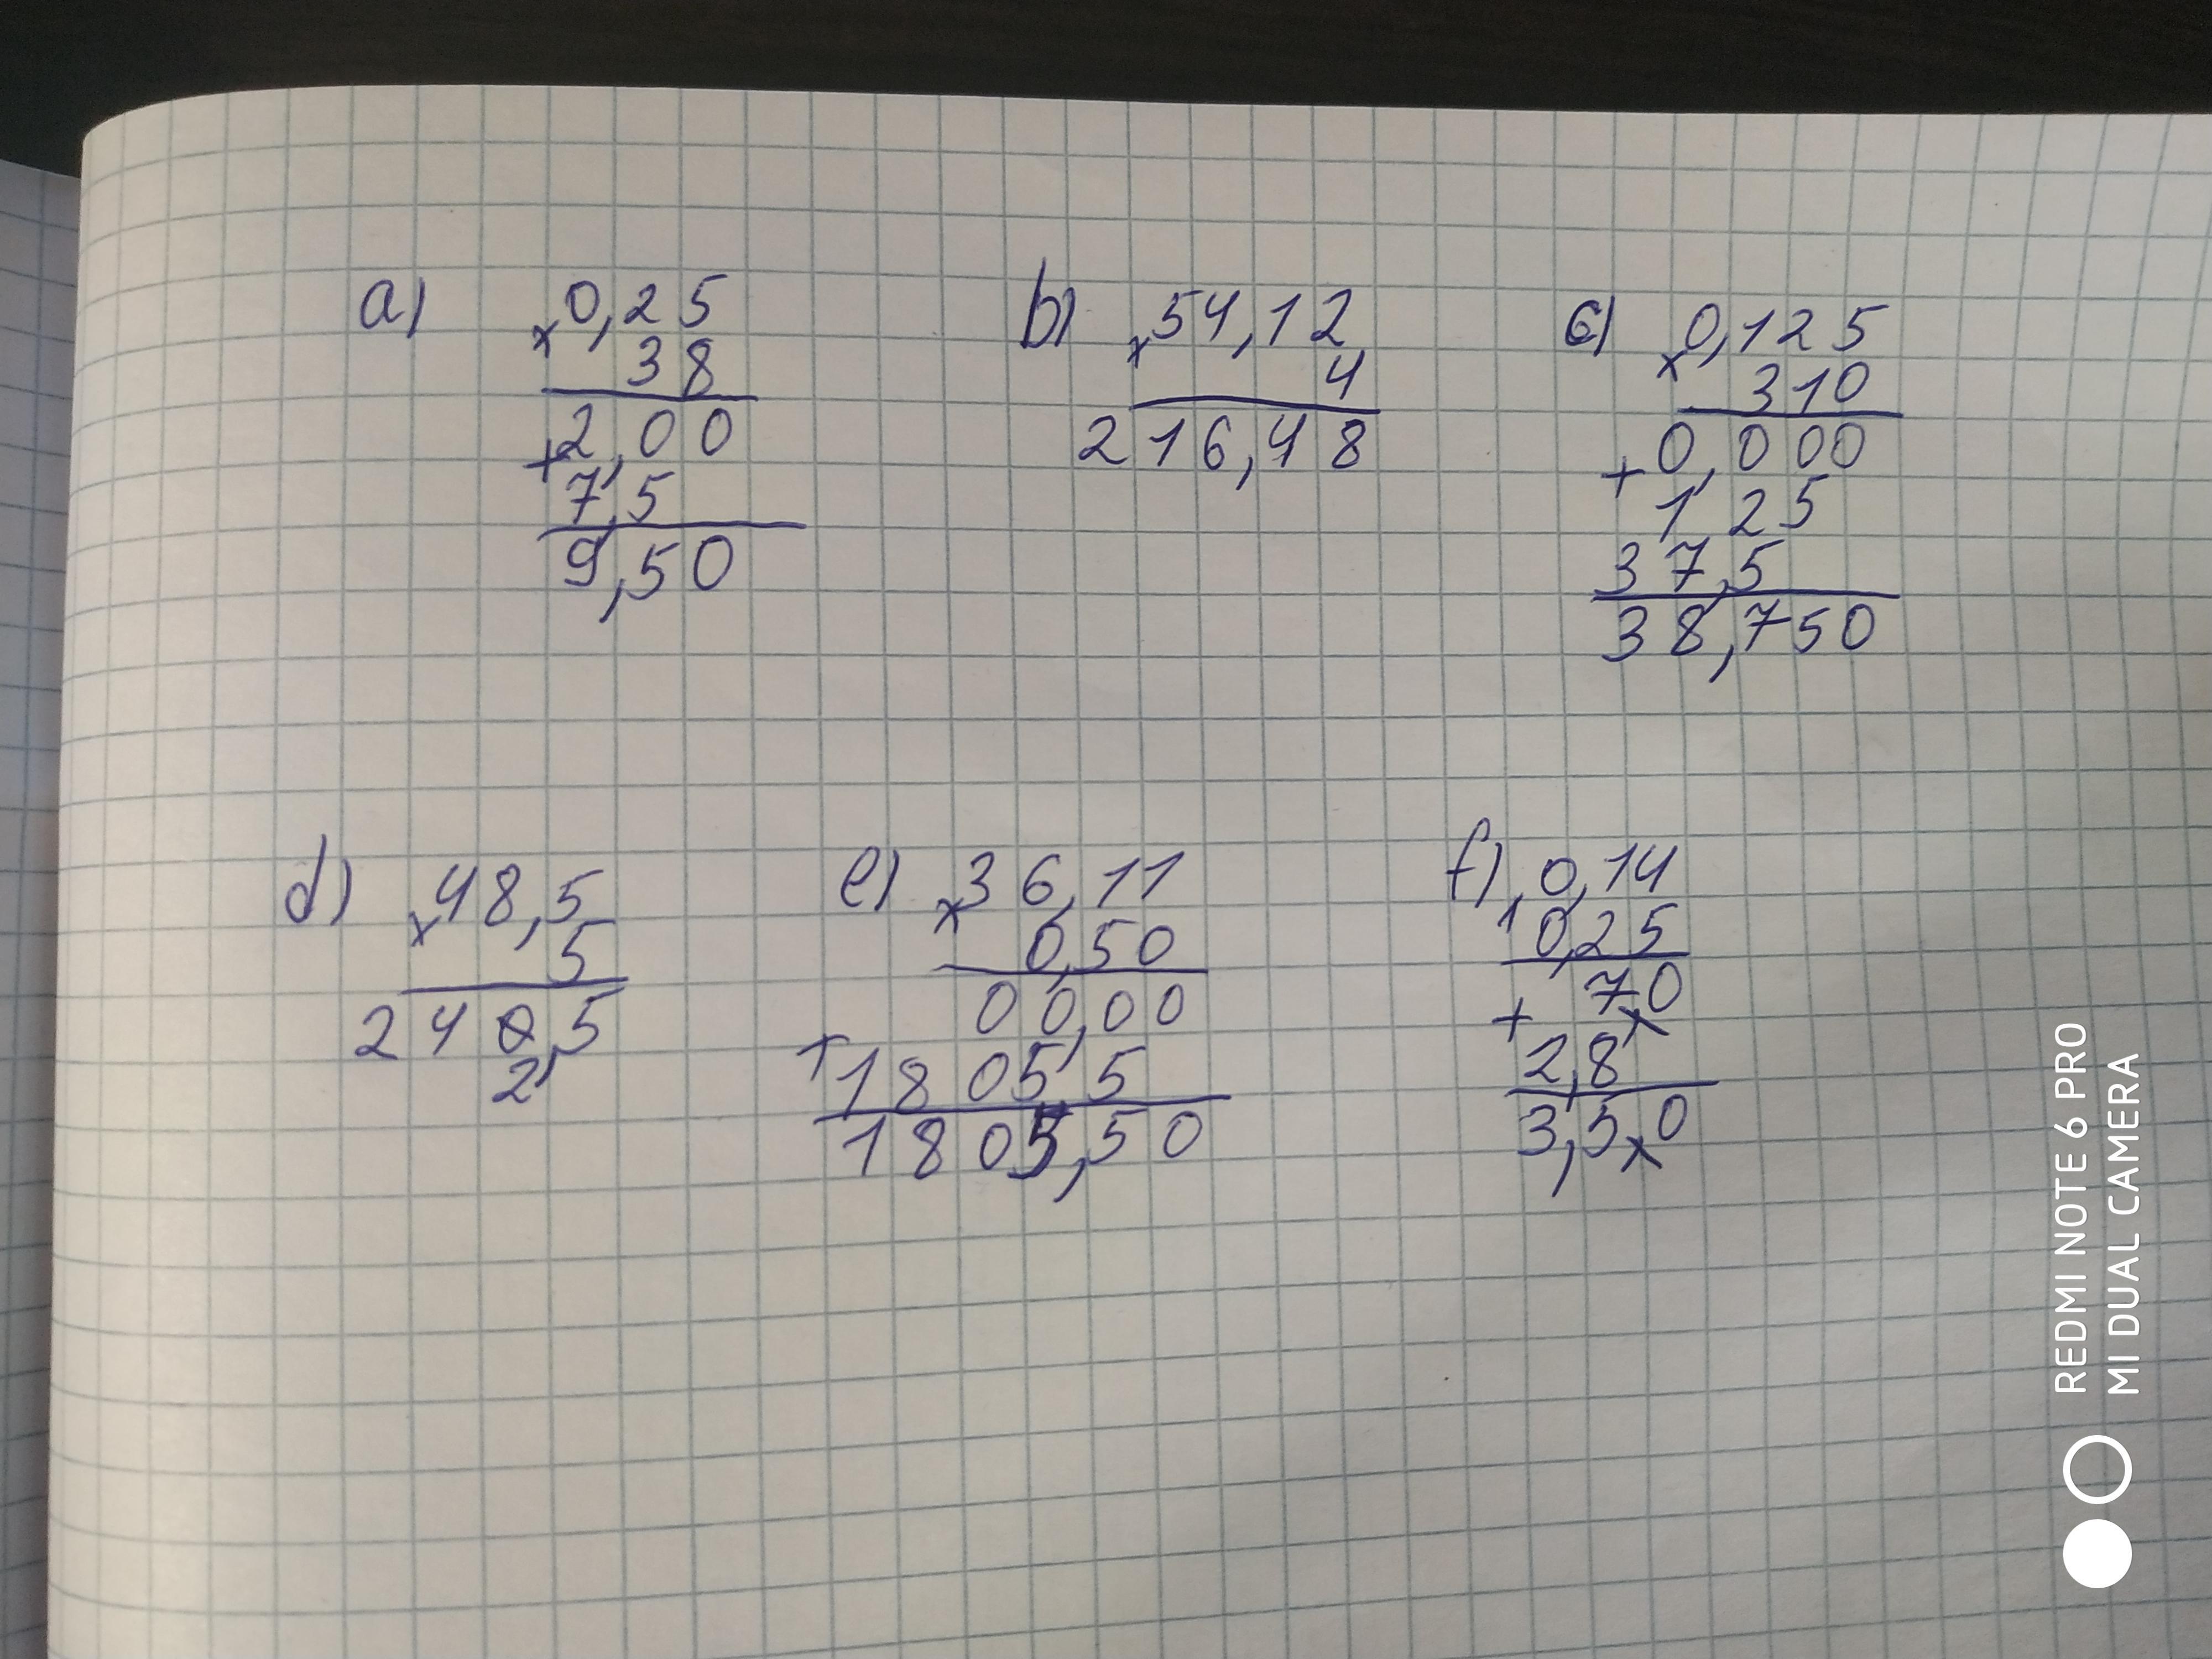 a) 0,25
x 38
2,00
+ 7,5
9,50
b) x 54,12
4
216,48
c) x 0,125
310
+ 0,000
1,25
37,5
38,750
d) x 48,5
5
240,5
2
e) x 36,11
0,50
00,00
+ 1805,5
1805,50
f) 0,14
0,25
+ 70
2,8
3,50
REDMI NOTE 6 PRO
MI DUAL CAMERA